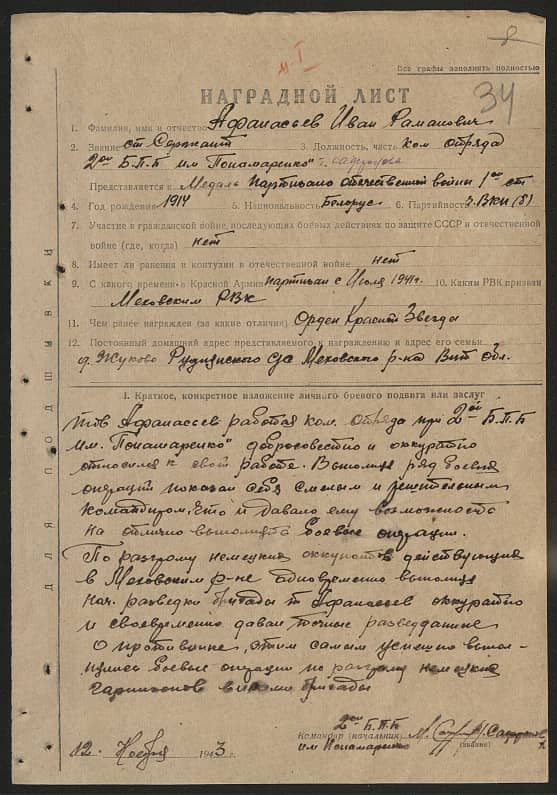 8
Все графы заполнять полностью
34
НАГРАДНОЙ ЛИСТ
1. Фамилия, имя и отчество Афанасьев Иван Раманович
2. Звание ст Сержант 3. Должность, часть ком отряда
2ой Б.П.Б им Понамаренко
Представляется к Медаль партизана отечественной войны 1ой ст
4. Год рождения 1914 5. Национальность Белорус 6. Партийность ч. ВКП(б)
7. Участие в гражданской войне, последующих боевых действиях по защите СССР и отечественной
войне (где, когда) нет
8. Имеет ли ранения и контузии в отечественной войне нет
9. С какого времени в Красной Армии партизан с Июля 1941г. 10. Каким РВК призван
Меховским РВК
11. Чем ранее награжден (за какие отличия) Орден Красной Звезда
12. Постоянный домашний адрес представляемого к награждению и адрес его семьи
д. Жуково с/с Меховского р-на Вит Обл.
ДЛЯ ПОДШИВКИ
I. Краткое, конкретное изложение личного боевого подвига или заслуг
Афанасьев работая ком. отряда при 2ой Б.П.Б
им. "Понамаренко" добросовестно и аккуратно
относился к свой работе. Выполняя ряд боевых
операций показал себя смелым и решительным
командиром. Что и давало ему возможность
на отлично выполнять боевые операции.
По разгрому немецких оккупантов действующих
в Меховском р-не одновременно выполняя
нач. разведки бригады т Афанасьев аккуратно
и своевременно давал точные разведданные
О противнике, этим самым успешно выпол-
нились боевые операции по разгрому немецких
гарнизонов бригады
2ой Б.П.Б
Командир (начальник)
им Понамаренко
(звание)
12. Ноября 1943 г.